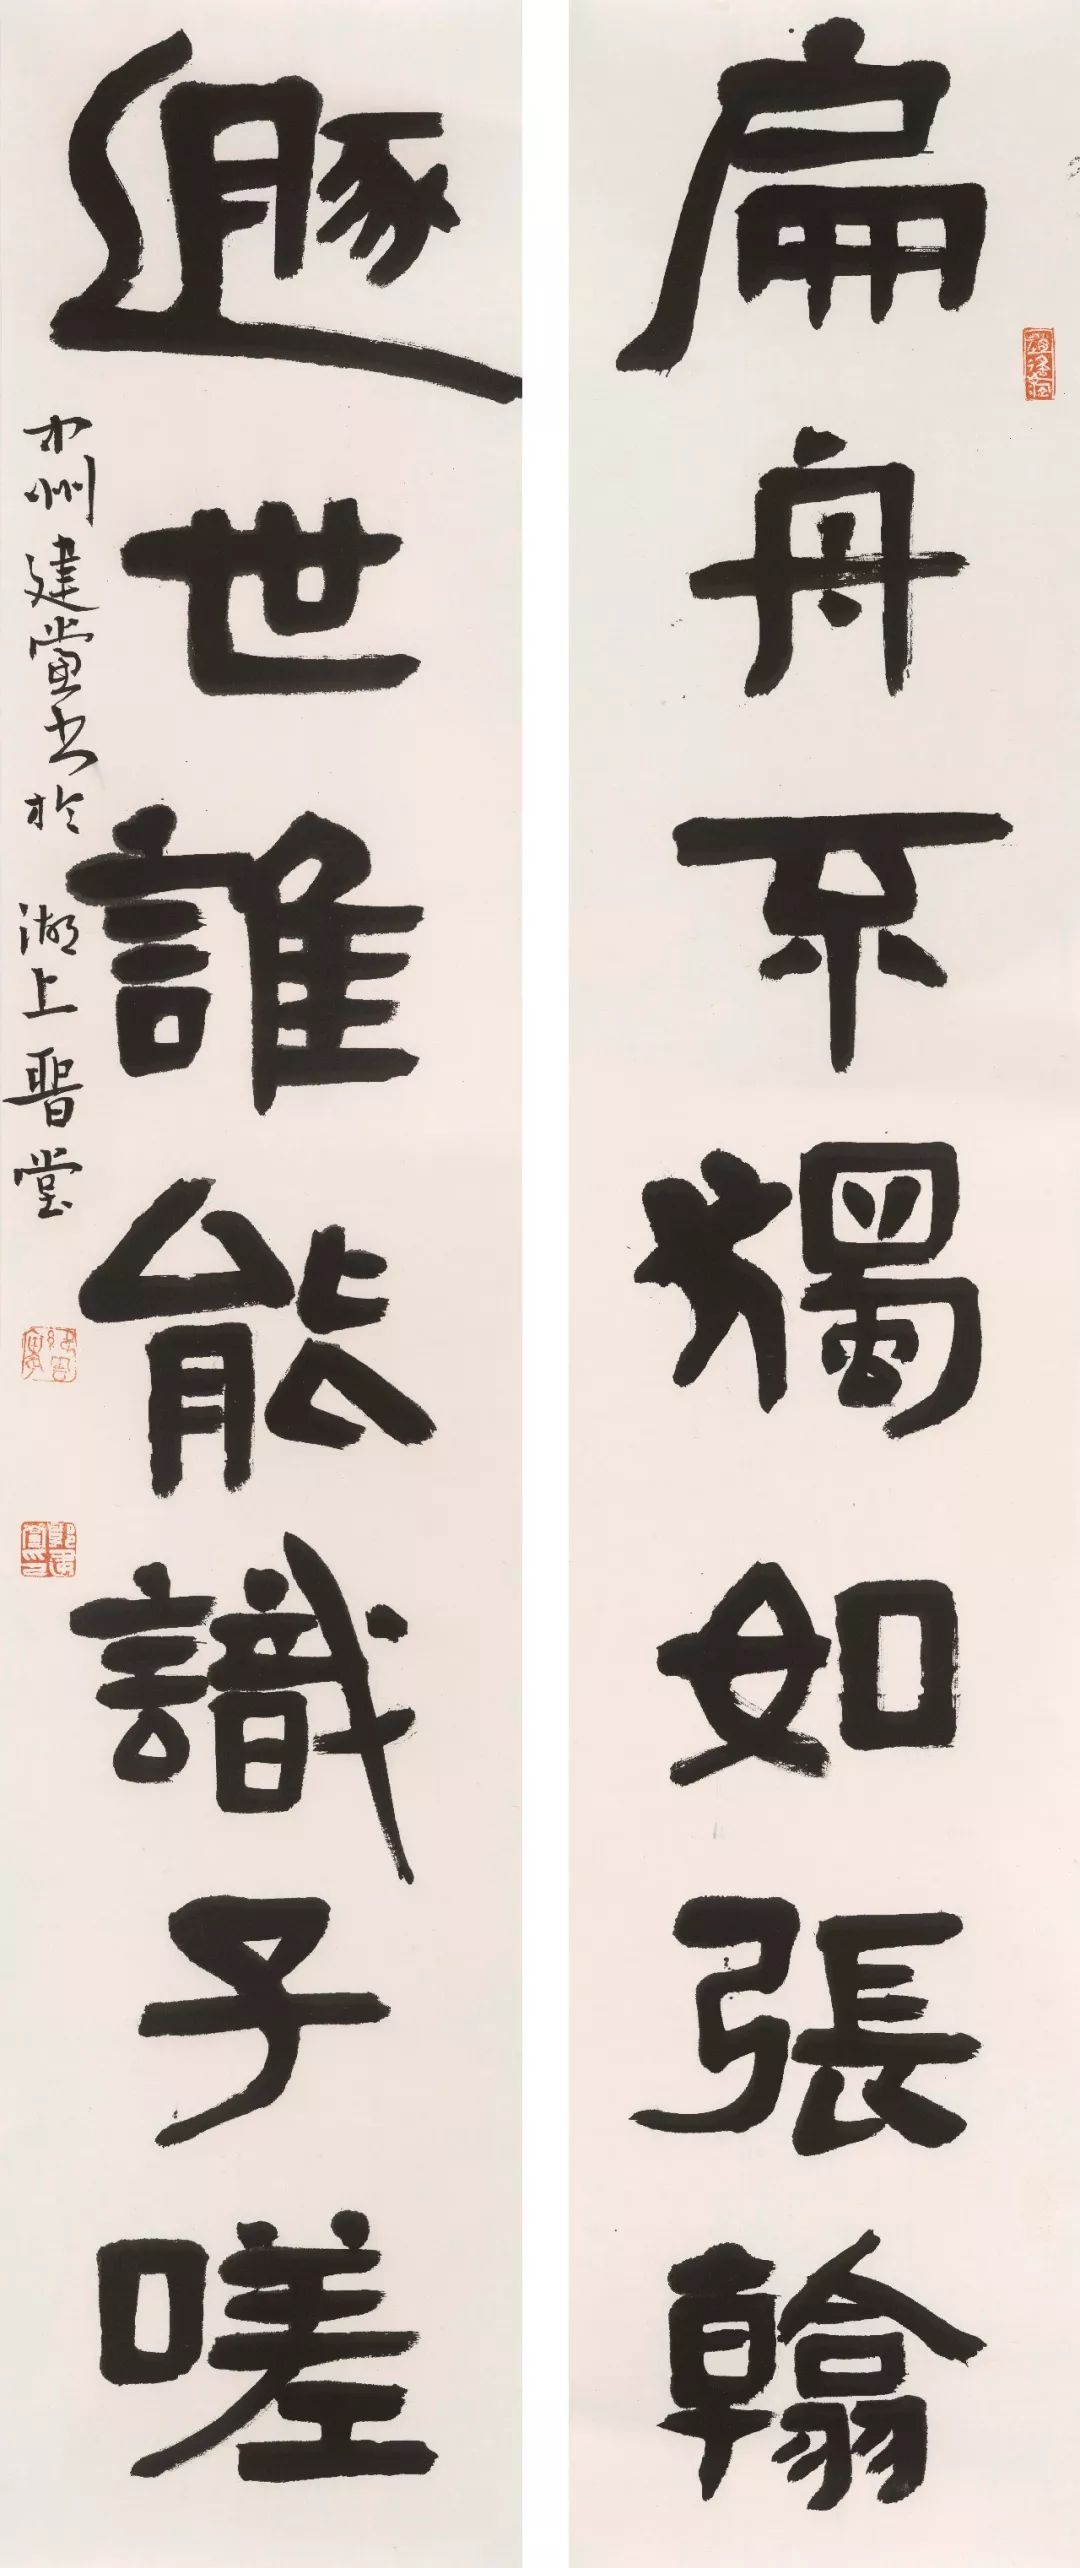 扁舟不獨如張翰
遯世誰能識子嗟
中州建黨书於湖上堂